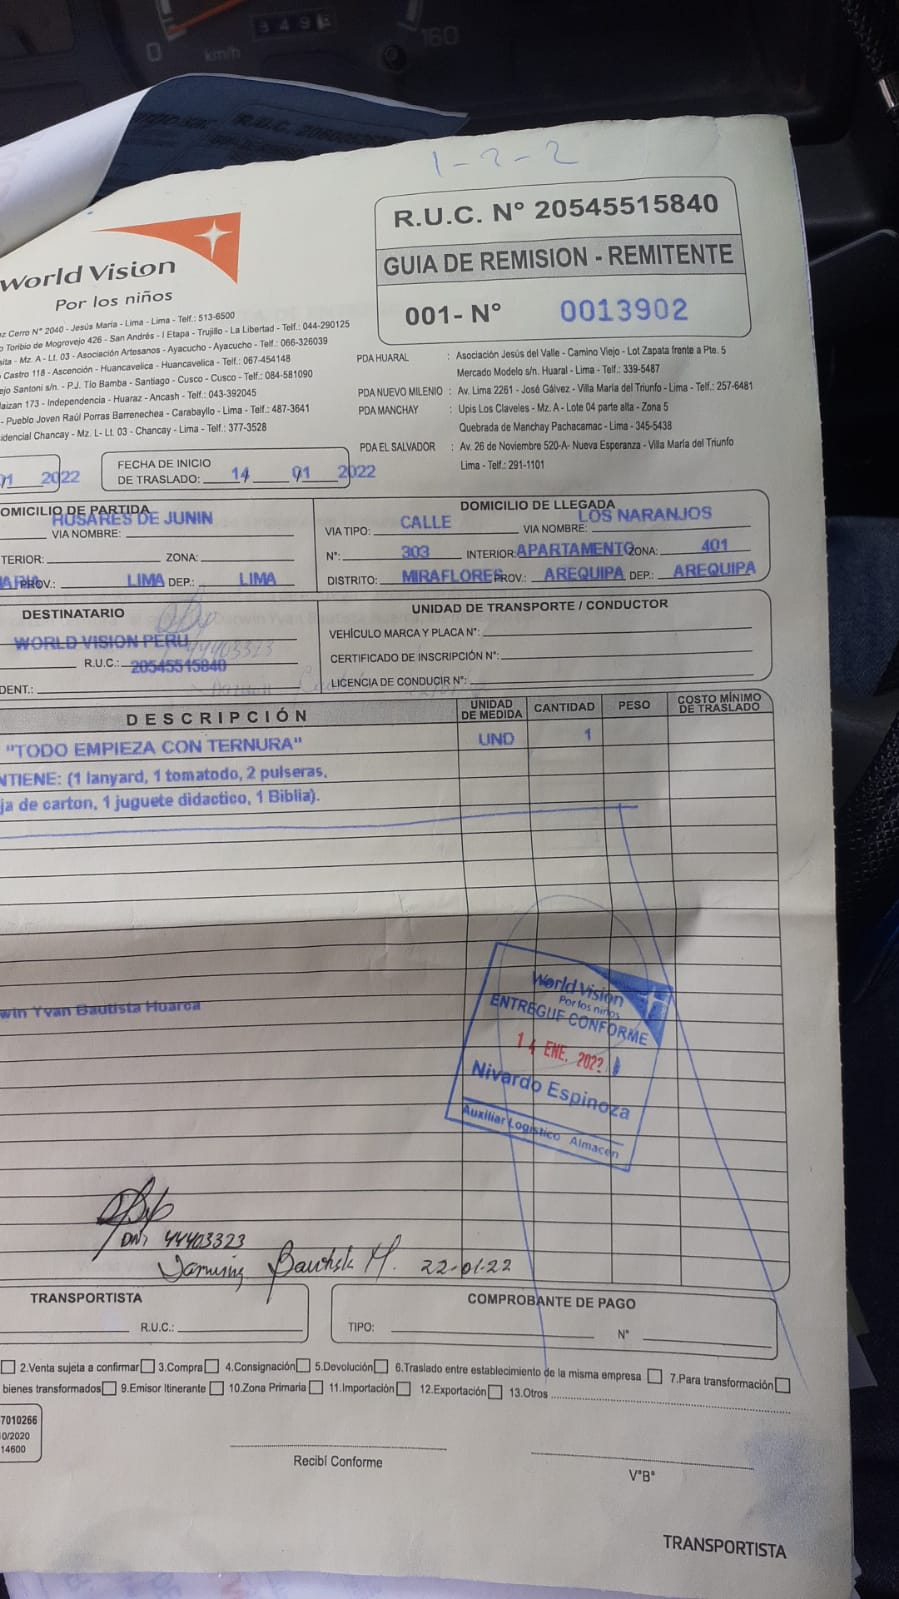 349
0 km/h 160
R.U.C.
1-2-2
World Vision
Por los niños
R.U.C. N° 20545515840
GUIA DE REMISION - REMITENTE
001- N° 0013902
Cerro N° 2040 - Jesús María - Lima - Lima - Telf.: 513-6500
Toribio de Mogrovejo 426 - San Andrés - I Etapa - Trujillo - La Libertad - Telf.: 044-290125
- Mz. A - Lt. 03 - Asociación Artesanos - Ayacucho - Ayacucho - Telf.: 066-326039
Castro 118 - Ascención - Huancavelica - Huancavelica - Telf.: 067-454148
Santoni s/n. - P.J. Tío Bamba - Santiago - Cusco - Cusco - Telf.: 084-581090
173 - Independencia - Huaraz - Ancash - Telf.: 043-392045
- Pueblo Joven Raúl Porras Barrenechea - Carabayllo - Lima - Telf.: 487-3641
Chancay - Mz. L- Lt. 03 - Chancay - Lima - Telf.: 377-3528
PDA HUARAL : Asociación Jesús del Valle - Camino Viejo - Lot Zapata frente a Pte. 5
Mercado Modelo s/n. Huaral - Lima - Telf.: 339-5487
PDA NUEVO MILENIO : Av. Lima 2261 - José Gálvez - Villa María del Triunfo - Lima - Telf.: 257-6481
PDA MANCHAY : Upis Los Claveles - Mz. A - Lote 04 parte alta - Zona 5
Quebrada de Manchay Pachacamac - Lima - 345-5438
PDA EL SALVADOR : Av. 26 de Noviembre 520-A- Nueva Esperanza - Villa María del Triunfo
Lima - Telf.: 291-1101
01 2022
FECHA DE INICIO
DE TRASLADO: 14 01 2022
DOMICILIO DE PARTIDA
HUSARES DE JUNIN
VIA NOMBRE:
TERIOR: ZONA:
PROV.: LIMA DEP.: LIMA
DOMICILIO DE LLEGADA
VIA TIPO: CALLE VIA NOMBRE: LOS NARANJOS
N°: 303 INTERIOR: APARTAMENTO ZONA: 401
DISTRITO: MIRAFLORES PROV.: AREQUIPA DEP.: AREQUIPA
DESTINATARIO
WORLD VISION PERU
44403323
R.U.C.: 20545515840
DENT.:
UNIDAD DE TRANSPORTE / CONDUCTOR
VEHÍCULO MARCA Y PLACA N°:
CERTIFICADO DE INSCRIPCIÓN N°:
LICENCIA DE CONDUCIR N°:
DESCRIPCIÓN UNIDAD DE MEDIDA CANTIDAD PESO COSTO MÍNIMO DE TRASLADO
"TODO EMPIEZA CON TERNURA" UND 1
NTIENE: (1 lanyard, 1 tomatodo, 2 pulseras,
ja de carton, 1 juguete didactico, 1 Biblia).
win Yvan Bautista Huarca
World Vision
Por los niños
ENTREGUE CONFORME
14 ENE. 2022
Nivardo Espinoza
Auxiliar Logistico Almacen
DNI 44403323
Bautista H. 22-01-22
TRANSPORTISTA
R.U.C.:
COMPROBANTE DE PAGO
TIPO: N°
2.Venta sujeta a confirmar 3.Compra 4.Consignación 5.Devolución 6.Traslado entre establecimiento de la misma empresa 7.Para transformación
bienes transformados 9.Emisor Itinerante 10.Zona Primaria 11.Importación 12.Exportación 13.Otros
7010266
0/2020
14600
Recibí Conforme
V°B°
TRANSPORTISTA